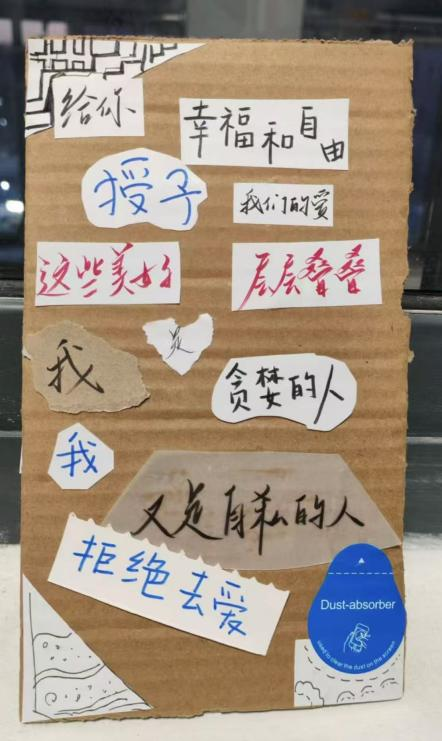 给你 幸福和自由
授予 我们的爱
这些美好 层层叠叠
我 是 贪婪的人
我 又是自私的人
拒绝去爱
Dust-absorber
used to clear the dust on the screen